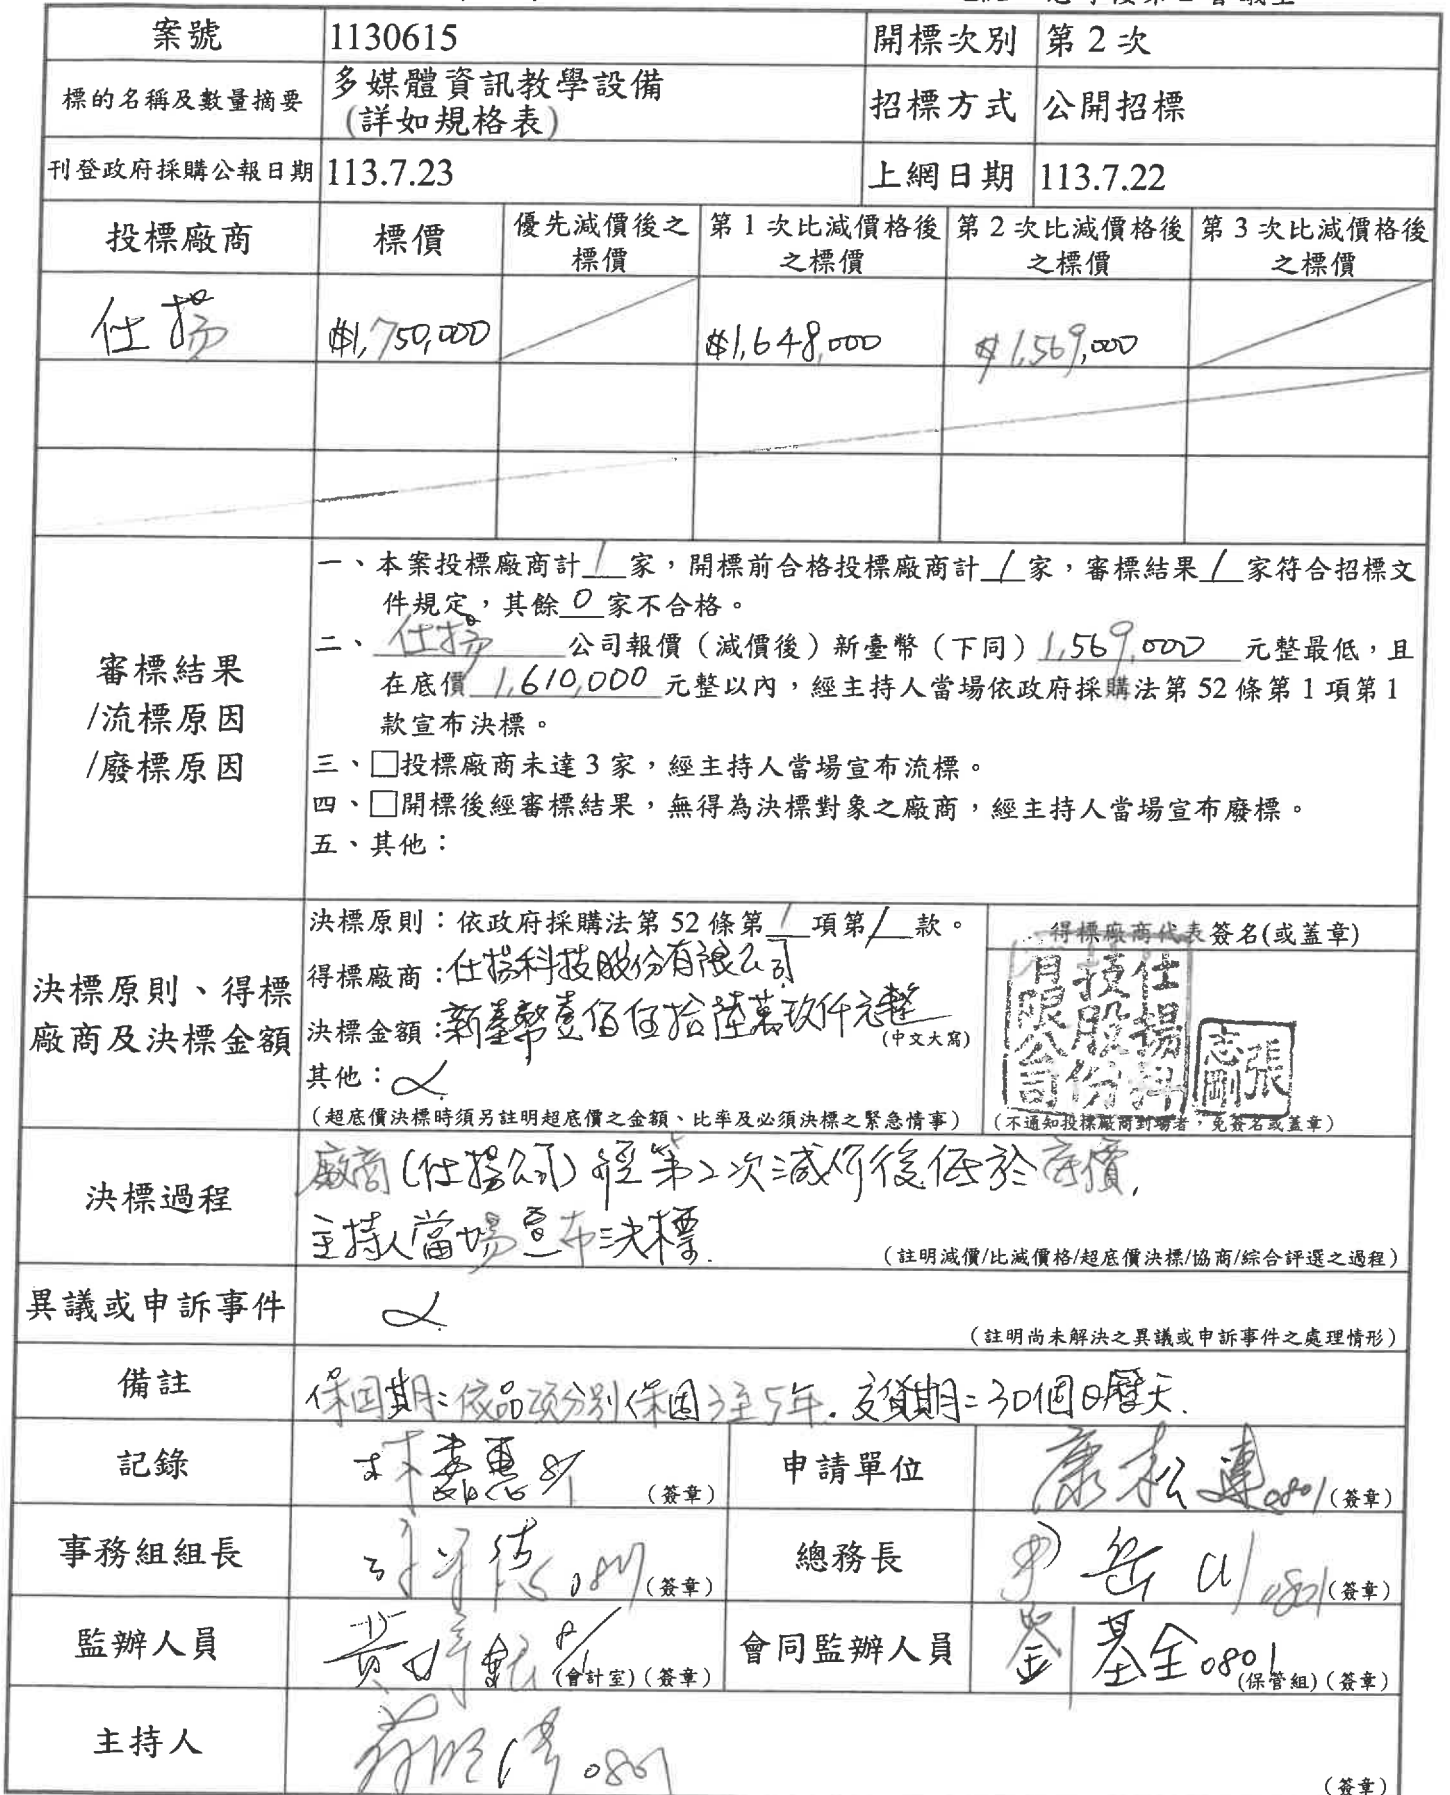 案號 1130615 開標次別 第2次
標的名稱及數量摘要 多媒體資訊教學設備
(詳如規格表) 招標方式 公開招標
刊登政府採購公報日期 113.7.23 上網日期 113.7.22
投標廠商 標價 優先減價後之標價 第1次比減價格後之標價 第2次比減價格後之標價 第3次比減價格後之標價
仕揚 $1,750,000 $1,648,000 $1,569,000
審標結果
/流標原因
/廢標原因
一、本案投標廠商計1家，開標前合格投標廠商計1家，審標結果1家符合招標文
件規定，其餘0家不合格。
二、仕揚公司報價（減價後）新臺幣（下同）1,569,000元整最低，且
在底價1,610,000元整以內，經主持人當場依政府採購法第52條第1項第1
款宣布決標。
三、□投標廠商未達3家，經主持人當場宣布流標。
四、□開標後經審標結果，無得為決標對象之廠商，經主持人當場宣布廢標。
五、其他：
決標原則、得標
廠商及決標金額
決標原則：依政府採購法第52條第1項第1款。
得標廠商：仕揚科技股份有限公司
決標金額：新臺幣壹佰伍拾陸萬玖仟元整
(中文大寫)
其他：
(超底價決標時須另註明超底價之金額、比率及必須決標之緊急情事)
得標廠商代表簽名(或蓋章)
仕揚科技股份有限公司
張志剛
(不通知投標廠商到場者，免簽名或蓋章)
決標過程
廠商(仕揚公司)經第2次減價後低於底價,
主持人當場宣布決標.
(註明減價/比減價格/超底價決標/協商/綜合評選之過程)
異議或申訴事件
(註明尚未解決之異議或申訴事件之處理情形)
備註 保固期:依品項分別保固3至5年.交貨期:30個日曆天.
記錄 8/1 (簽章) 申請單位 康松連0801 (簽章)
事務組組長 0801 (簽章) 總務長 岳 0801 (簽章)
監辦人員 黃 8/1 (會計室)(簽章) 會同監辦人員 劉基全0801 (保管組)(簽章)
主持人 0801 (簽章)